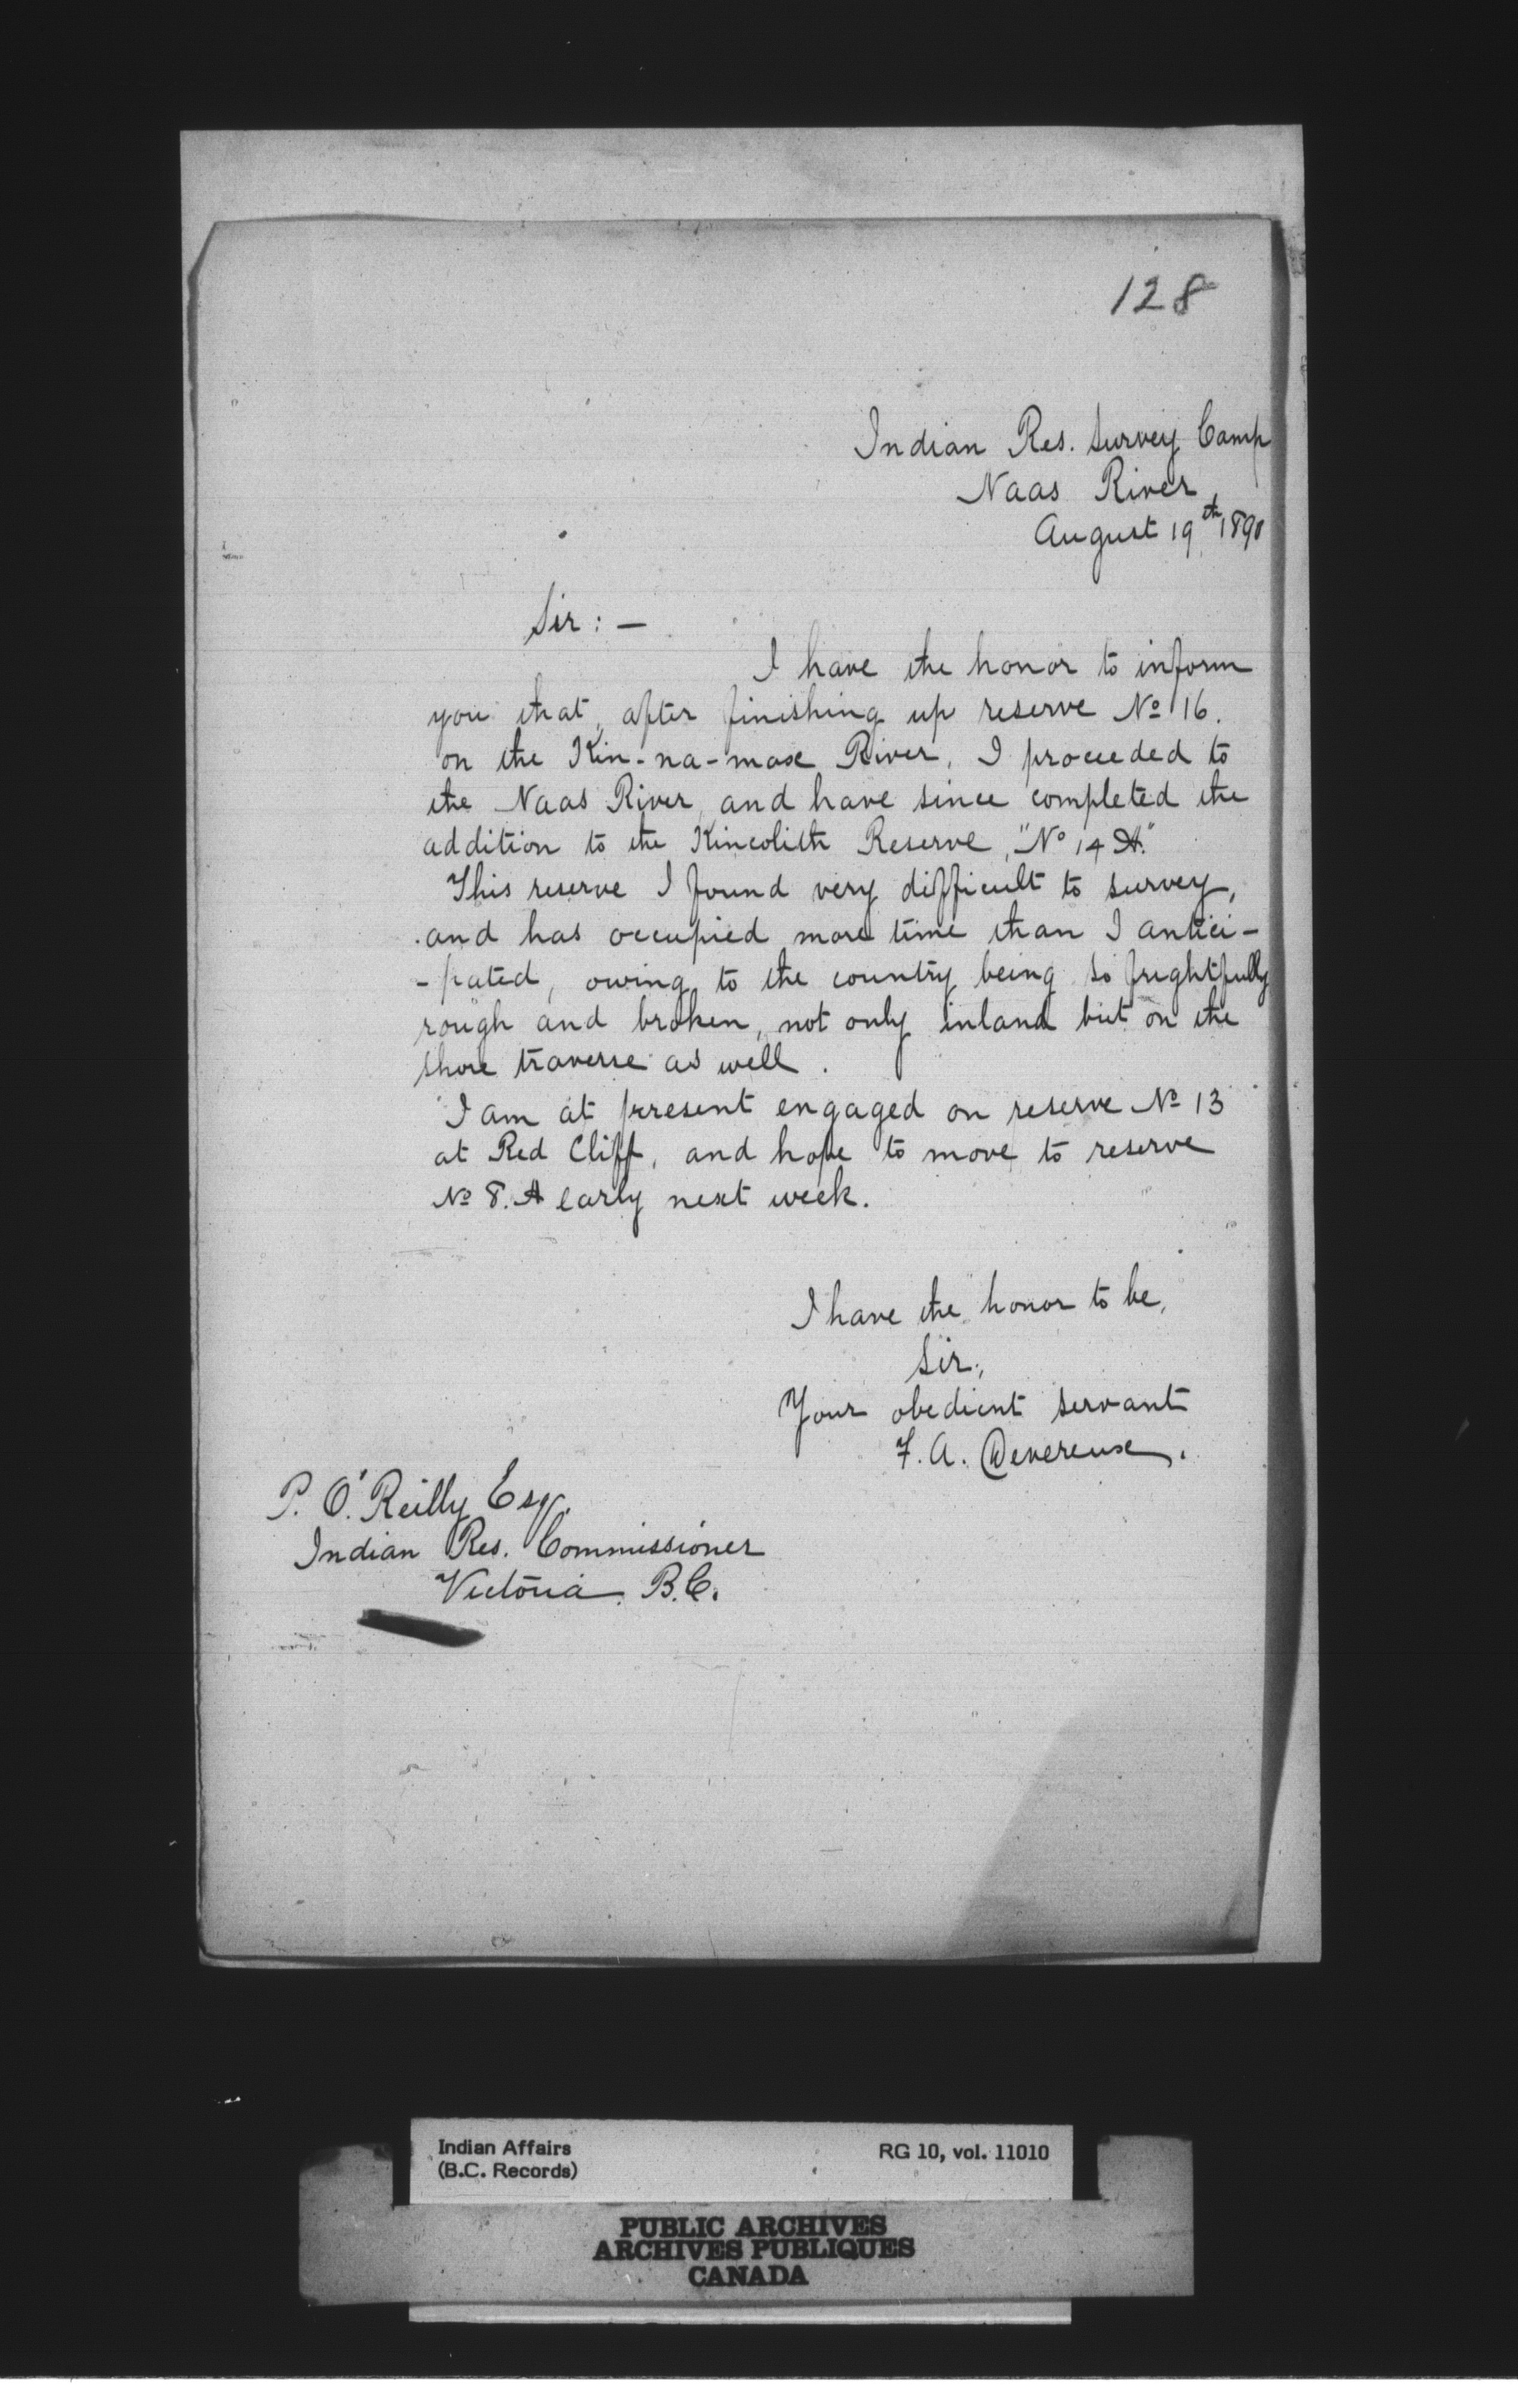 128
Indian Res. Survey Camp
Naas River,
August 19th 1890
Sir: —
I have the honor to inform
you that, after finishing up reserve No 16.
on the Kin-na-max River, I proceeded to
the Naas River, and have since completed the
addition to the Kincolith Reserve, "No 14 A."
This reserve I found very difficult to survey,
and has occupied more time than I antici-
-pated, owing to the country being so frightfully
rough and broken, not only inland but on the
shore traverse as well.
I am at present engaged on reserve No 13
at Red Cliff, and hope to move to reserve
No 8. A early next week.
I have the honor to be,
Sir,
Your obedient servant
F. A. Devereux.
P. O'Reilly Esq.
Indian Res. Commissioner
Victoria B.C.
Indian Affairs
(B.C. Records)
RG 10, vol. 11010
PUBLIC ARCHIVES
ARCHIVES PUBLIQUES
CANADA